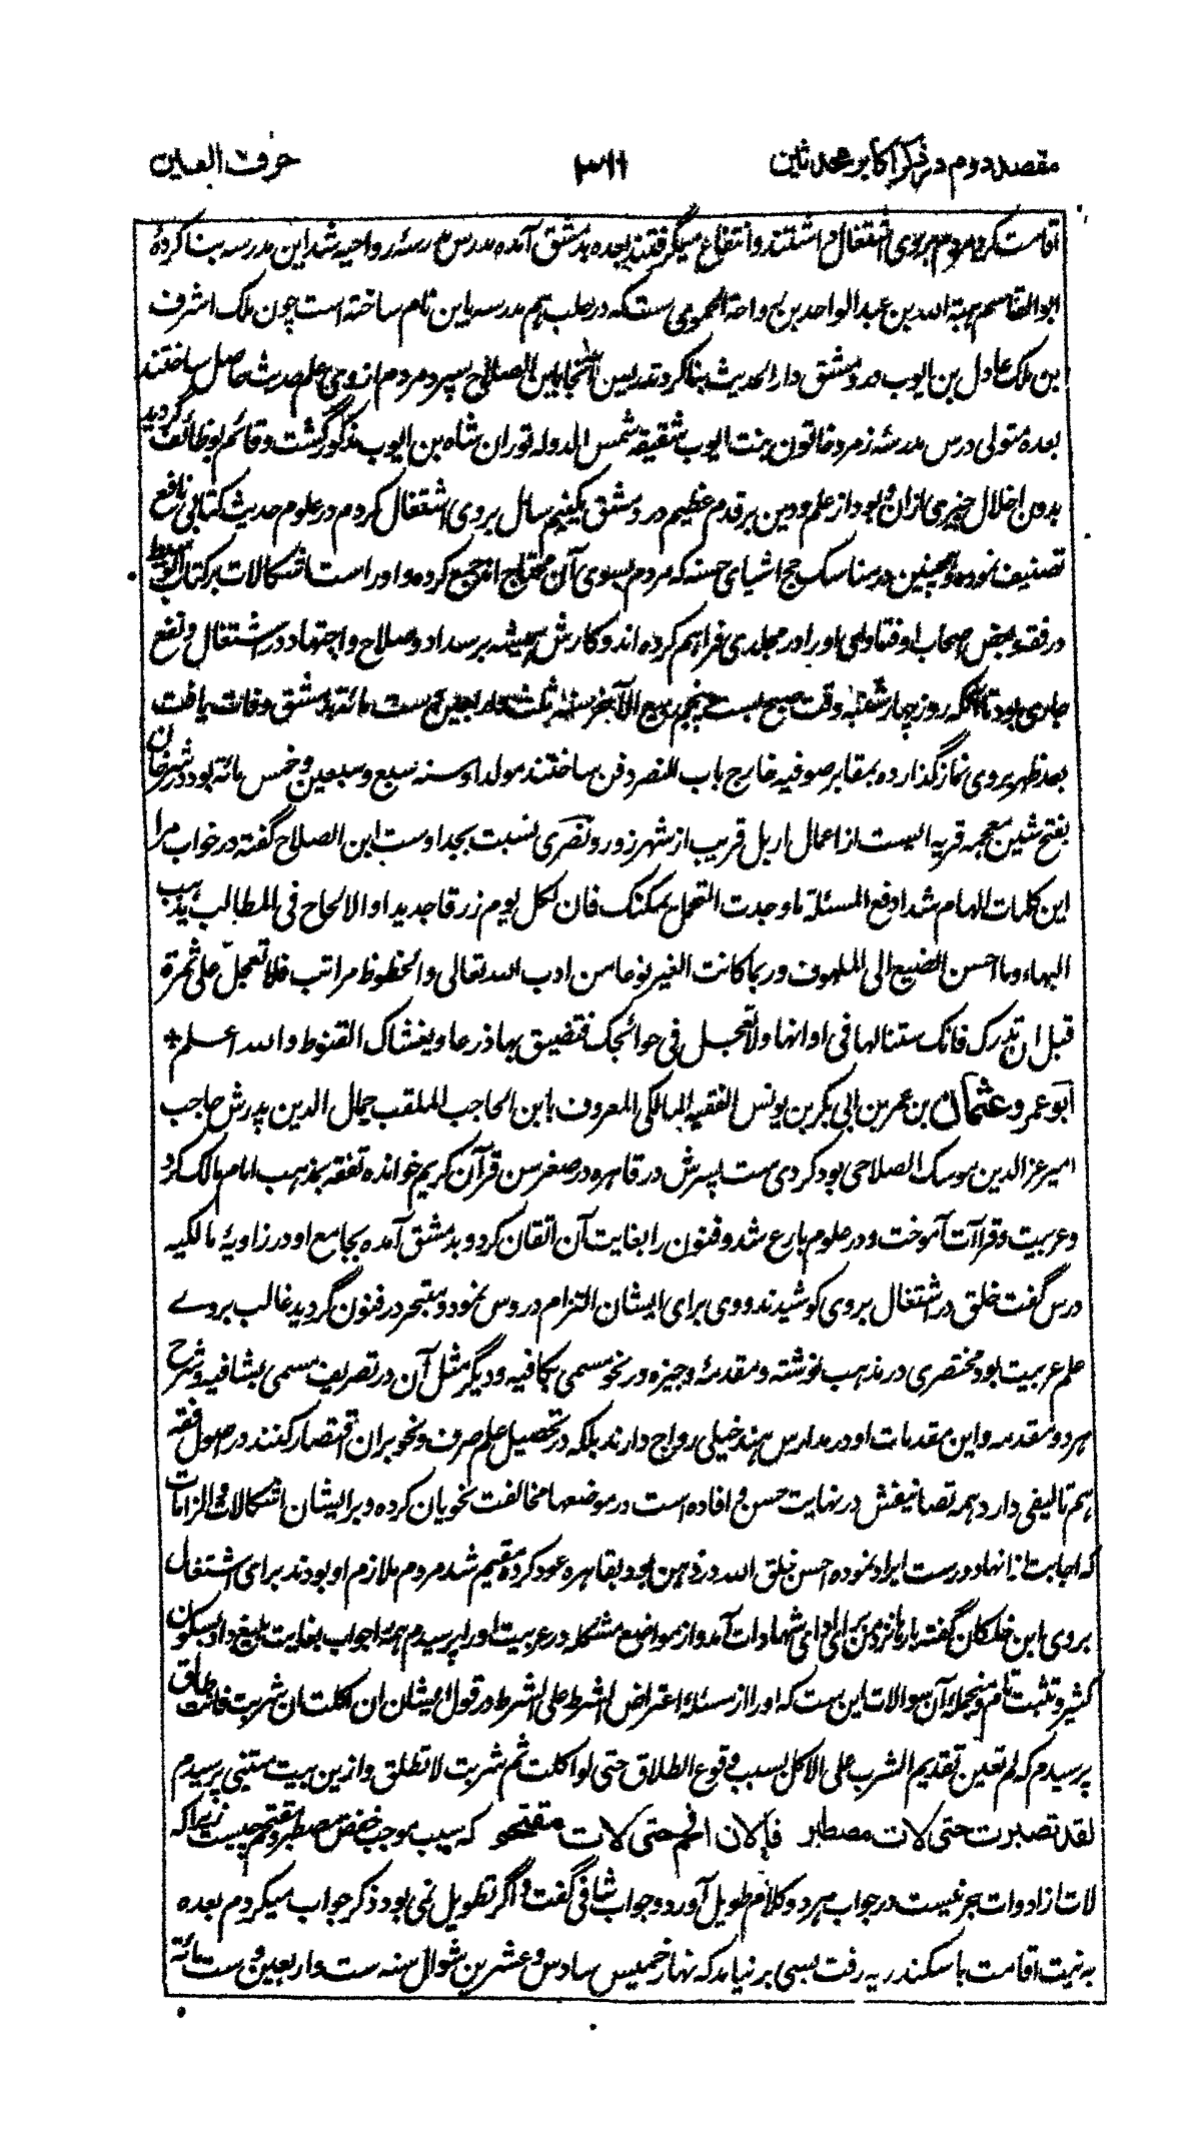 مقصد دوم در ذکر اکابر محدثین ۳۱۱ حرف العین
اقامت کرد مردم بروی اشتغال داشتند و انتفاع میگرفتند بعده بدمشق آمده مدرس مدرسهٔ رواحیه شد این مدرسه بنا کردهٔ
ابو القاسم هبة الله بن عبد الواحد بن رواحة الحموی ست که در حلب هم مدرسه باین نام ساخته است چون ملک اشرف
بن ملک عادل بن ایوب در دمشق دار الحدیث بنا کرد تدریس آنجا بابن الصلاح سپرد مردم از وی علم حدیث حاصل ساختند
بعده متولی درس مدرسه زمرد خاتون بنت ایوب شقیقه شمس الدوله توران شاه بن ایوب مذکور گشت و قائم بوظائف گردید
بدون اخلال چیزی ازان و بود از علم و دین بر قدم عظیم در دمشق یکنیم سال بروی اشتغال کردم در علوم حدیث کتابی نافع
تصنیف نموده و همچنین در مناسک حج اشیای حسنه که مردم بسوی آن محتاج اند جمع کرده و او راست اشکالات بر کتاب وسیط
در فقه و بعض اصحاب او فتاوای او را در مجلدی فراهم کرده اند و کارش همیشه بر سداد و صلاح و اجتهاد در اشتغال و نفع
جاری بود تا آنکه روز چهار شنبه وقت صبح بست پنجم ربیع الآخر سنه ثلث و اربعین و ست مائة بدمشق وفات یافت
بعد ظهر بروی نماز گذارده بمقابر صوفیه خارج باب النصر دفن ساختند مولد او سنه سبع و سبعین و خمس مائة بود در شرخان
بفتح شین معجمه قریه ایست از اعمال اربل قریب از شهرزور و نصری نسبت بجد اوست ابن الصلاح گفته در خواب مرا
این کلمات الهام شد ادفع المسئلة ما وجدت التحمل یمکنک فان لکل یوم رزقا جدیدا و الالحاح فی المطالب یذهب
البهاء و ما احسن الصنیع الی الملهوف و ربما کانت الغیر نوعا من ادب الله تعالی و الحظوظ مراتب فلا تعجل علی ثمرة
قبل ان تدرک فانک ستنالها فی اوانها و لا تعجل فی حوائجک فتضیق بها ذرعا و یغشاک القنوط و الله اعلم +
ابو عمرو عثمان بن عمر بن ابی بکر بن یونس الفقیه المالکی المعروف بابن الحاجب الملقب جمال الدین پدرش حاجب
امیر عز الدین موسک الصلاحی بود کردی ست پسرش در قاهره در صغر سن قرآن کریم خوانده تفقه بمذهب امام مالک کرد
و عربیت و قراآت آموخت و در علوم بارع شد و فنون را بغایت آن اتقان کرد و بدمشق آمده بجامع او در زاویهٔ مالکیه
درس گفت خلق در اشتغال بروی کوشیدند و وی برای ایشان التزام دروس نمود و متبحر در فنون گردید غالب بروے
علم عربیت بود مختصری در مذهب نوشته و مقدمهٔ وجیزه در نحو مسمی بکافیه و دیگر مثل آن در تصریف مسمی بشافیه و شرح
هر دو مقدمه و این مقدمات او در مدارس هند خیلی رواج دارند بلکه در تحصیل علم صرف و نحو بران اقتصار کنند در اصول فقه
هم تالیفی دارد همه تصانیفش در نهایت حسن و افاده است در موضعها مخالفت نحویان کرده و بر ایشان اشکالات و الزامات
که اجابت از انها دورست ایراد نموده احسن خلق الله در ذهن بود بقاهره عود کرده مقیم شد مردم ملازم او بودند برای اشتغال
بروی ابن خلکان گفته بارها نزد من برای ادای شهادات آمد و از مواضع مشکله در عربیت او را پرسیدم همه اجواب بغایت بلیغ داد بسکون
کثیر و تثبت تام و منجملهٔ آن سوالات این ست که او را از مسئله اعتراض الشرط علی الشرط در قول ایشان ان اکلت ان شربت فانت طالق
پرسیدم که لم تعین تقدیم الشرب علی الاکل بسبب وقوع الطلاق حتی لو اکلت ثم شربت لا تطلق و ازین بیت متنبی پرسیدم
لقد تصبرت حتی لات مصطبر فالان اقحم حتی لات مقتحم که سبب موجب خفض مصطبر و مقتحم چیست زیرا که
لات از ادوات جر نیست در جواب هر دو کلام طویل آورد و جواب شافی گفت و اگر تطویل نمی بود ذکر جواب میکردم بعده
به نیت اقامت باسکندریه رفت بسی بر نیامد که نهار خمیس سادس و عشرین شوال سنه ست و اربعین و ست مائة